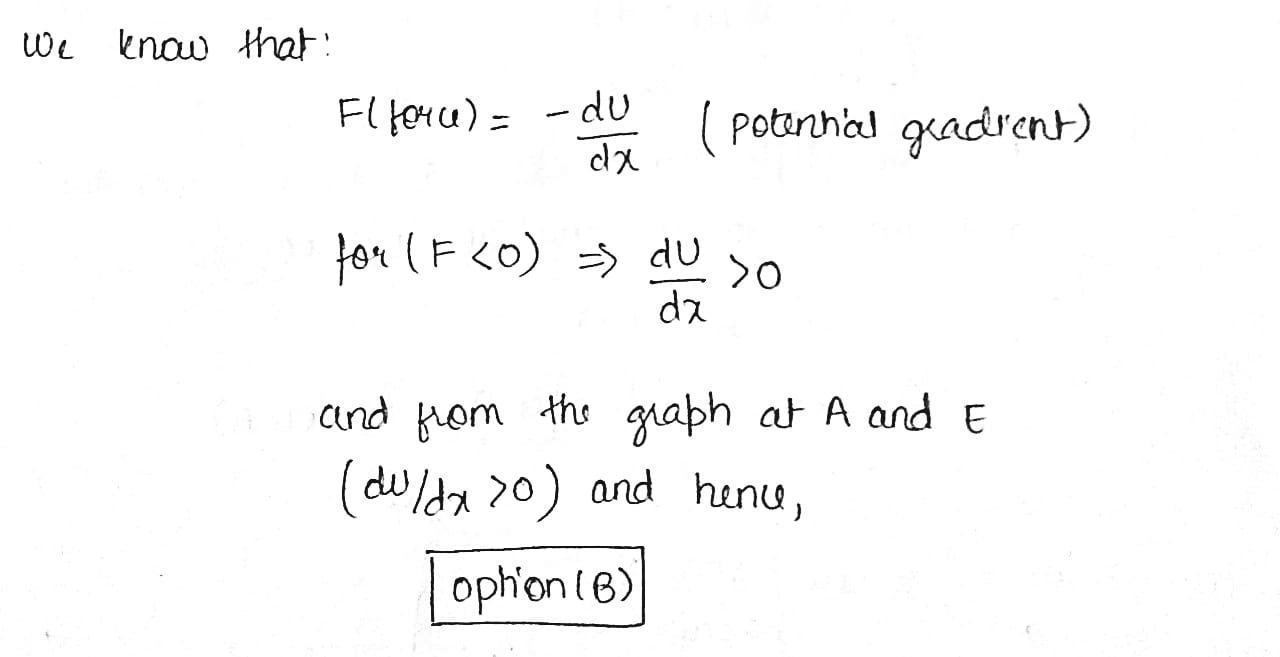 we know that:
F(force) = - dU/dx (potential gradient)
for (F <0) ⇒ dU/dx >0
and from the graph at A and E
(dU/dx >0) and hence,
option (B)